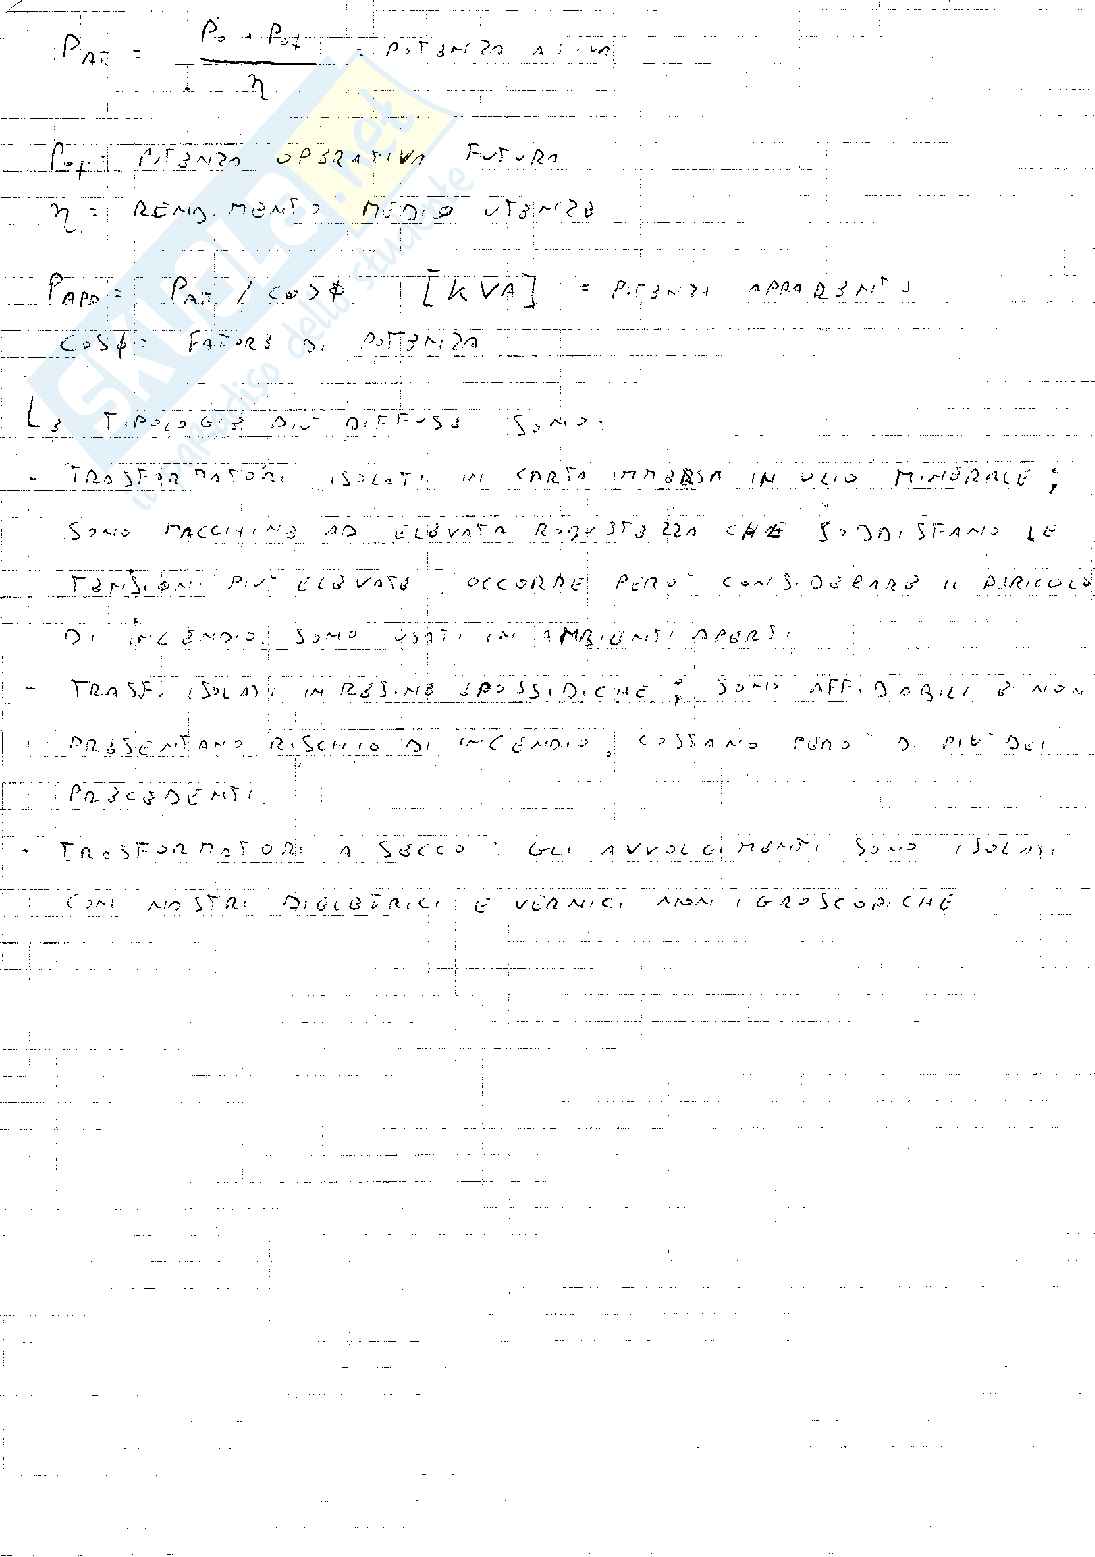 P_AT = (P_o + P_of) / η = POTENZA ATTIVA
P_of = POTENZA OPERATIVA FUTURA
η = RENDIMENTO MEDIO UTENZE
P_APP = P_AT / cosφ [KVA] = POTENZA APPARENTE
COSφ = FATORE DI POTENZA
LE TIPOLOGIE PIU' DIFFUSE SONO:
- TRASFORMATORI ISOLATI IN CARTA IMMERSA IN OLIO MINERALE;
SONO MACCHINE AD ELEVATA ROBUSTEZZA CHE SODDISFANO LE
TENSIONI PIU' ELEVATE. OCCORRE PERO' CONSIDERARE IL PERICOLO
DI INCENDIO, SONO USATI IN AMBIENTI APERTI.
- TRASF. ISOLATI IN RESINE EPOSSIDICHE; SONO AFFIDABILI E NON
PRESENTANO RISCHIO DI INCENDIO, COSTANO PERO' DI PIU' DEI
PRECEDENTI.
- TRASFORMATORI A SECCO: GLI AVVOLGIMENTI SONO ISOLATI
CON NASTRI DIELETRICI E VERNICI NON IGROSCOPICHE
SKUOLA.net
il paradiso dello studente